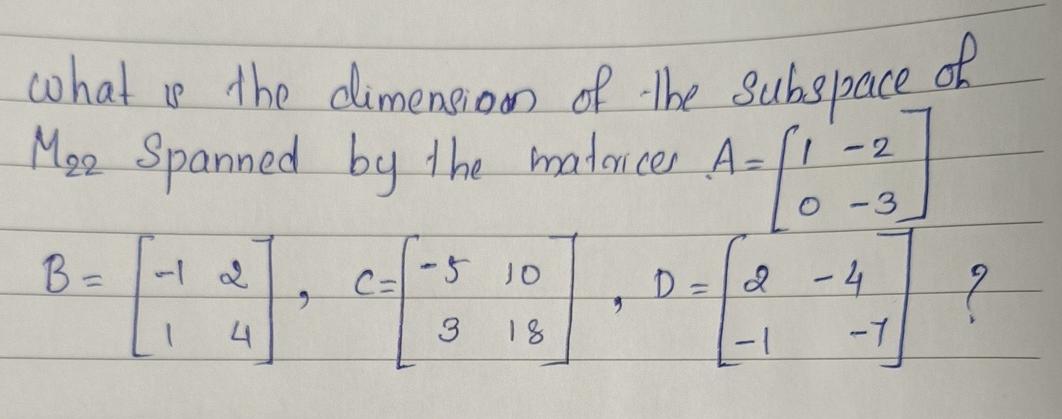 what is the dimension of the subspace of
M₂₂ Spanned by the matrices A = [1 -2
0 -3]
B = [-1 2 , C = [-5 10 , D = [2 -4 ?
1 4] 3 18] -1 -7]